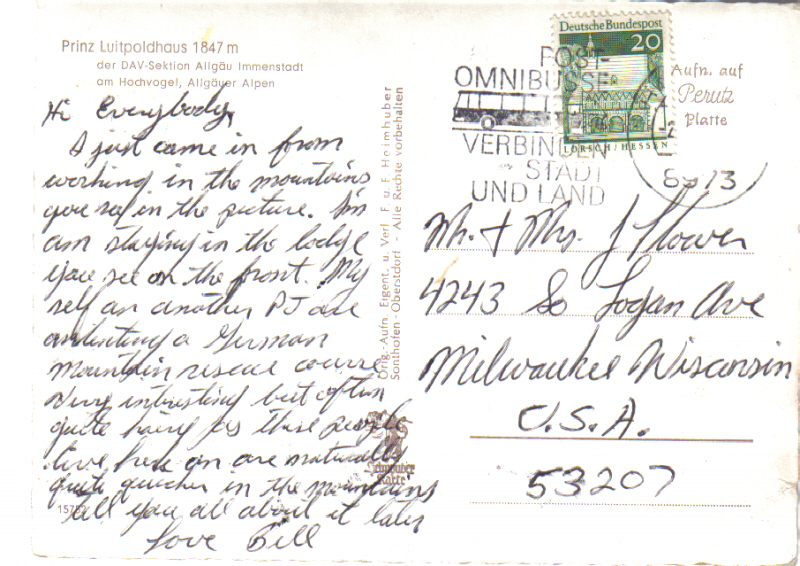 Prinz Luitpoldhaus 1847 m
der DAV-Sektion Allgäu Immenstadt
am Hochvogel, Allgäuer Alpen
Hi Everybody,
I just came in from
working in the mountains
you see in the picture. I'm
am staying in the lodge
you see on the front. My
self an another PJ are
attending a German
mountain rescue course
Very intresting but often
quite hairy as these people
live here an are naturally
quite quicker in the mountains
tell you all about it later
Love Bill
Orig.-Aufn. Eigent. u. Verl. F. u. E. Heimhuber
Sonthofen - Oberstdorf - Alle Rechte vorbehalten
Heimhuber
Karte
Deutsche Bundespost
20
LORSCH/HESSEN
POST-
OMNIBUSSE
VERBINDEN
STADT
UND LAND
8973
Aufn. auf
Perutz
Platte
Mr. + Mrs. J Stower
4243 So Logan Ave
Milwaukee Wisconsin
U.S.A.
53207